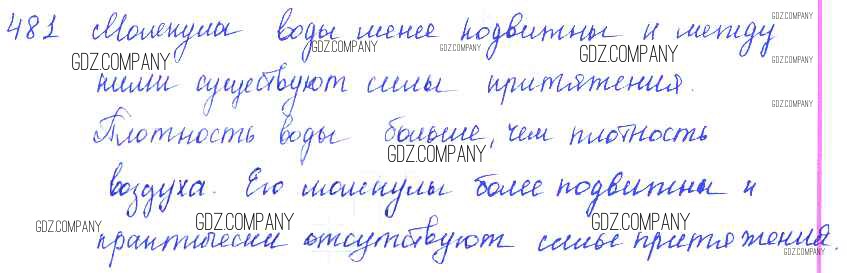 481 Молекулы воды менее подвижны и между
ними существуют силы притяжения.
Плотность воды больше, чем плотность
воздуха. Его молекулы более подвижны и
практически отсутствуют силы притяжения.
GDZ.COMPANY
GDZ.COMPANY
GDZ.COMPANY
GDZ.COMPANY
GDZ.COMPANY
GDZ.COMPANY
GDZ.COMPANY
GDZ.COMPANY
GDZ.COMPANY
GDZ.COMPANY
GDZ.COMPANY
GDZ.COMPANY